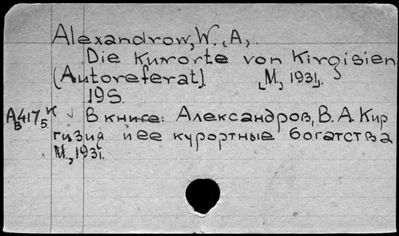 Alexandrow, W. A,.
Die Kurorte von Kirgisien
(Autoreferat] [M, 1931].
19S.
A 417/5 K В книге: Александров, В. А. Кир
в гизия и ее курортные богатства
М., 1931.